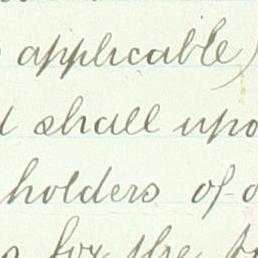 applicable)
shall upo
holders of
for the